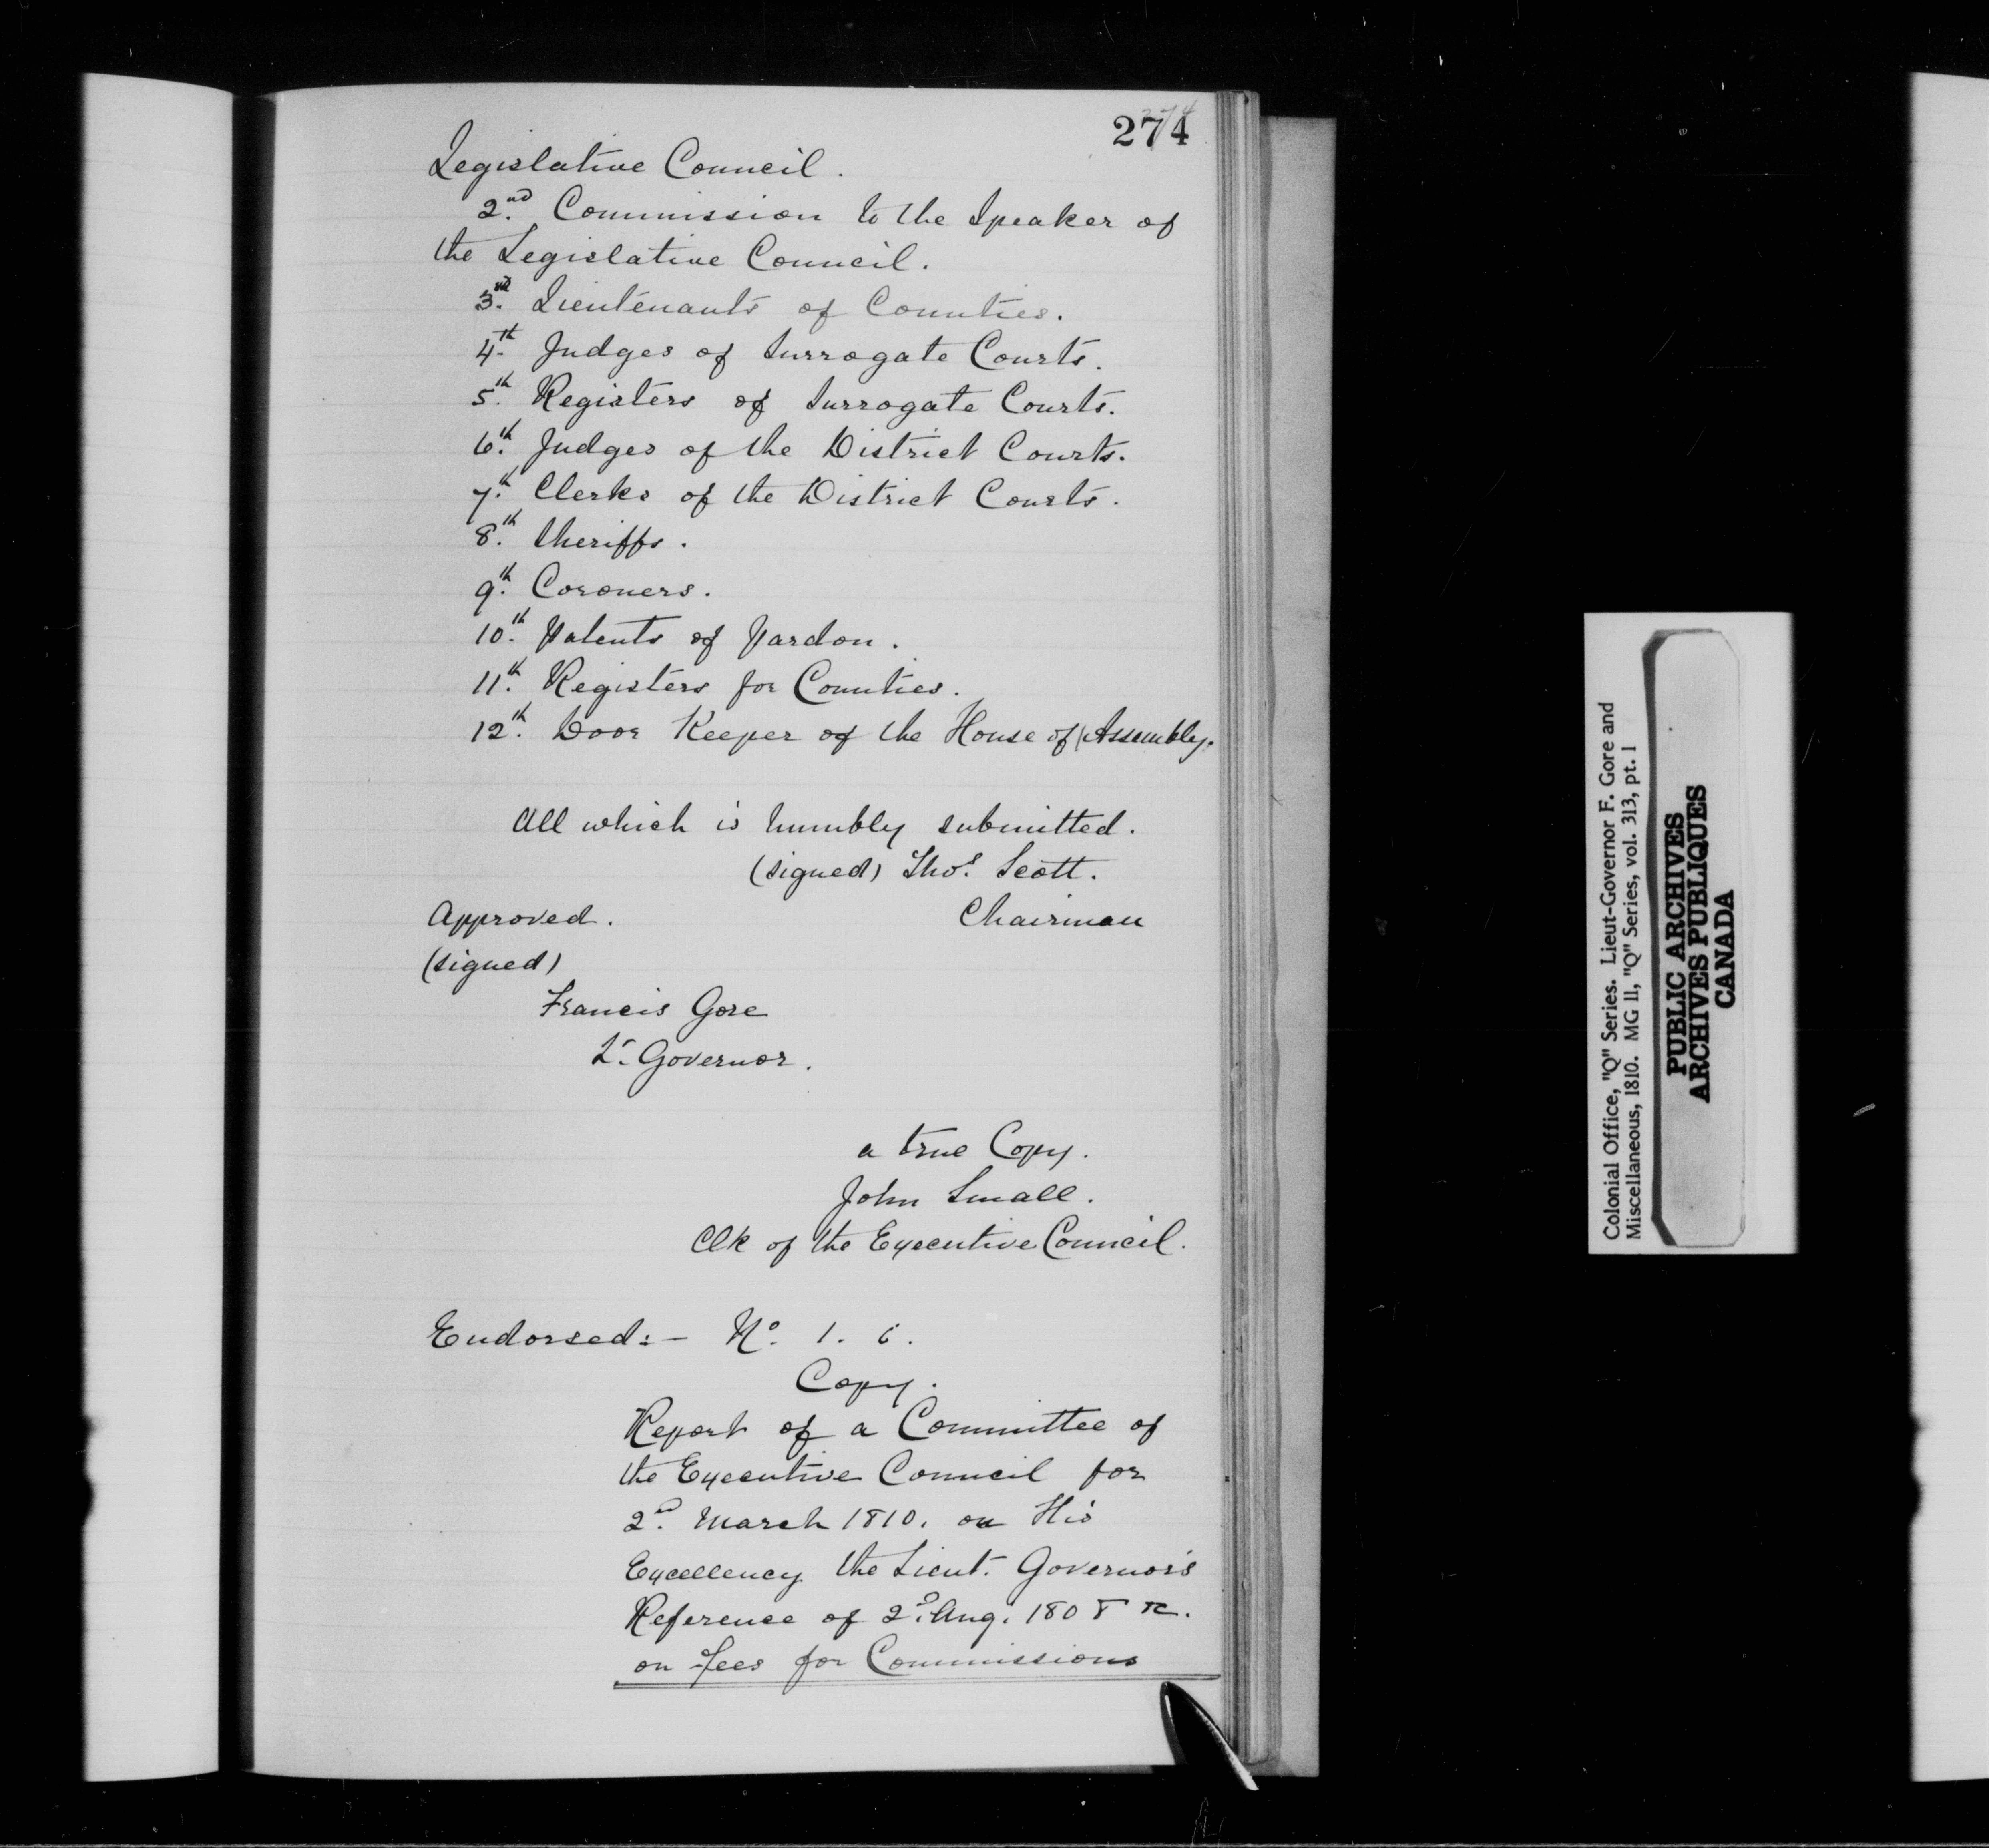 274
274
Legislative Council.
2nd. Commission to the Speaker of
the Legislative Council.
3rd. Lieutenants of Counties.
4th. Judges of Surrogate Courts.
5th. Registers of Surrogate Courts.
6th. Judges of the District Courts.
7th. Clerks of the District Courts.
8th. Sheriffs.
9th. Coroners.
10th. Patents of Pardon.
11th. Registers for Counties.
12th. Door Keeper of the House of Assembly.
All which is humbly submitted.
(signed) Thos. Scott.
Approved. Chairman
(signed)
Francis Gore
Lt. Governor.
a true Copy.
John Small.
Clk of the Executive Council.
Endorsed:- No. 1. 6.
Copy.
Report of a Committee of
the Executive Council for
2nd. March 1810. on His
Excellency the Lieut. Governor's
Reference of 2d. Aug. 1808 &c.
on fees for Commissions
Colonial Office, "Q" Series. Lieut-Governor F. Gore and
Miscellaneous, 1810. MG 11, "Q" Series, vol. 313, pt. 1
PUBLIC ARCHIVES
ARCHIVES PUBLIQUES
CANADA